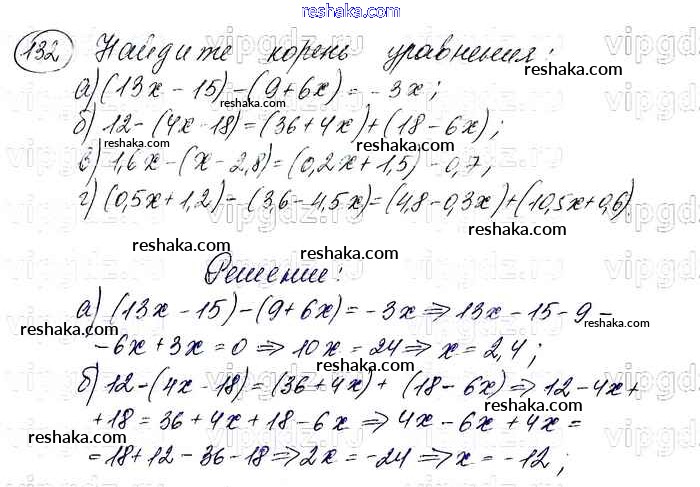 reshaka.com
132 Найдите корень уравнения:
а) (13x - 15) - (9 + 6x) = - 3x;
reshaka.com
б) 12 - (4x - 18) = (36 + 4x) + (18 - 6x);
reshaka.com reshaka.com
в) 1,6x - (x - 2,8) = (0,2x + 1,5) - 0,7;
reshaka.com
г) (0,5x + 1,2) - (3,6 - 4,5x) = (4,8 - 0,3x) + (10,5x + 0,6)
reshaka.com reshaka.com
reshaka.com
Решение:
reshaka.com reshaka.com
а) (13x - 15) - (9 + 6x) = - 3x ⇒ 13x - 15 - 9 -
reshaka.com
- 6x + 3x = 0 ⇒ 10x = 24 ⇒ x = 2,4;
reshaka.com reshaka.com
б) 12 - (4x - 18) = (36 + 4x) + (18 - 6x) ⇒ 12 - 4x +
reshaka.com
+ 18 = 36 + 4x + 18 - 6x ⇒ 4x - 6x + 4x =
reshaka.com reshaka.com
= 18 + 12 - 36 - 18 ⇒ 2x = - 24 ⇒ x = - 12;
reshaka.com
vipgdz.ru